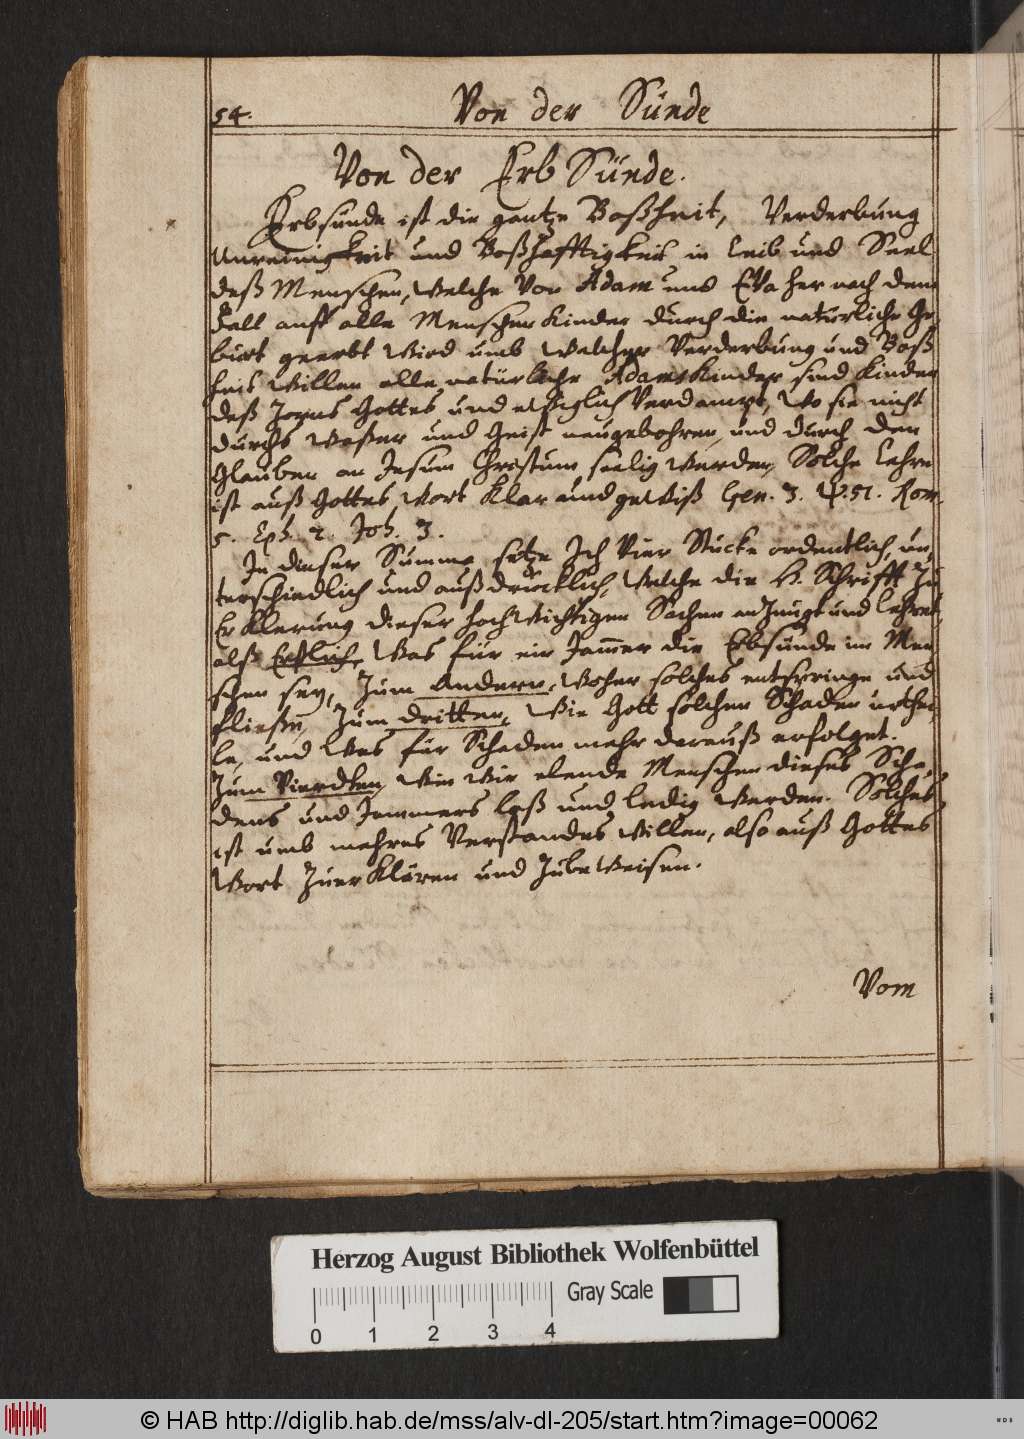 54.
Von der Sünde
Von der Erb Sünde.
Erbsünde ist die gantze Boßheit, Verderbung
Unreinigkeit und Boßhafftigkeit in Leib und Seel
deß Menschen, welche Von Adam und Eva her nach dem
Fall auff alle Menschen Kinder durch die natürliche Ge-
burt geerbt Wird umb Welcher Verderbung und Boß
heit Willen alle natürliche Adams Kinder sind Kinder
deß Zorns Gottes und ewiglich Verdampt, Wo sie nicht
durchs Waßer und Geist neugebohren, und durch den
Glauben an Jesum Christum seelig werden, Solche Lehre
ist auß Gottes Wort Klar und gewiß Gen. 3. Ps. 51. Rom.
5. Eph. 2. Joh. 3.
In dieser Summa setze Ich Vier Stücke ordentlich, un-
terschiedlich und außdrücklich, Welche die H. Schrifft zu
Erklerung dieser hochwichtigen Sachen anzeigt und lehret,
alß Erstliche Was für ein Jam̄er die Erbsünde im Men
schen sey, Zum Andern, Woher solches entspringe und
fließe, Zum dritten, Wie Gott solchen Schaden urthei-
le, und Was für Schaden mehr darauß erfolget.
Zum Vierdten, Wie Wir elende Menschen dieses Scha-
dens und Jammers loß und ledig Werden. Solches
ist umb mehres Verstandes Willen, also auß Gottes
Wort Zuer Klären und Zube Weisen.
Vom
Herzog August Bibliothek Wolfenbüttel
Gray Scale
0 1 2 3 4
© HAB http://diglib.hab.de/mss/alv-dl-205/start.htm?image=00062